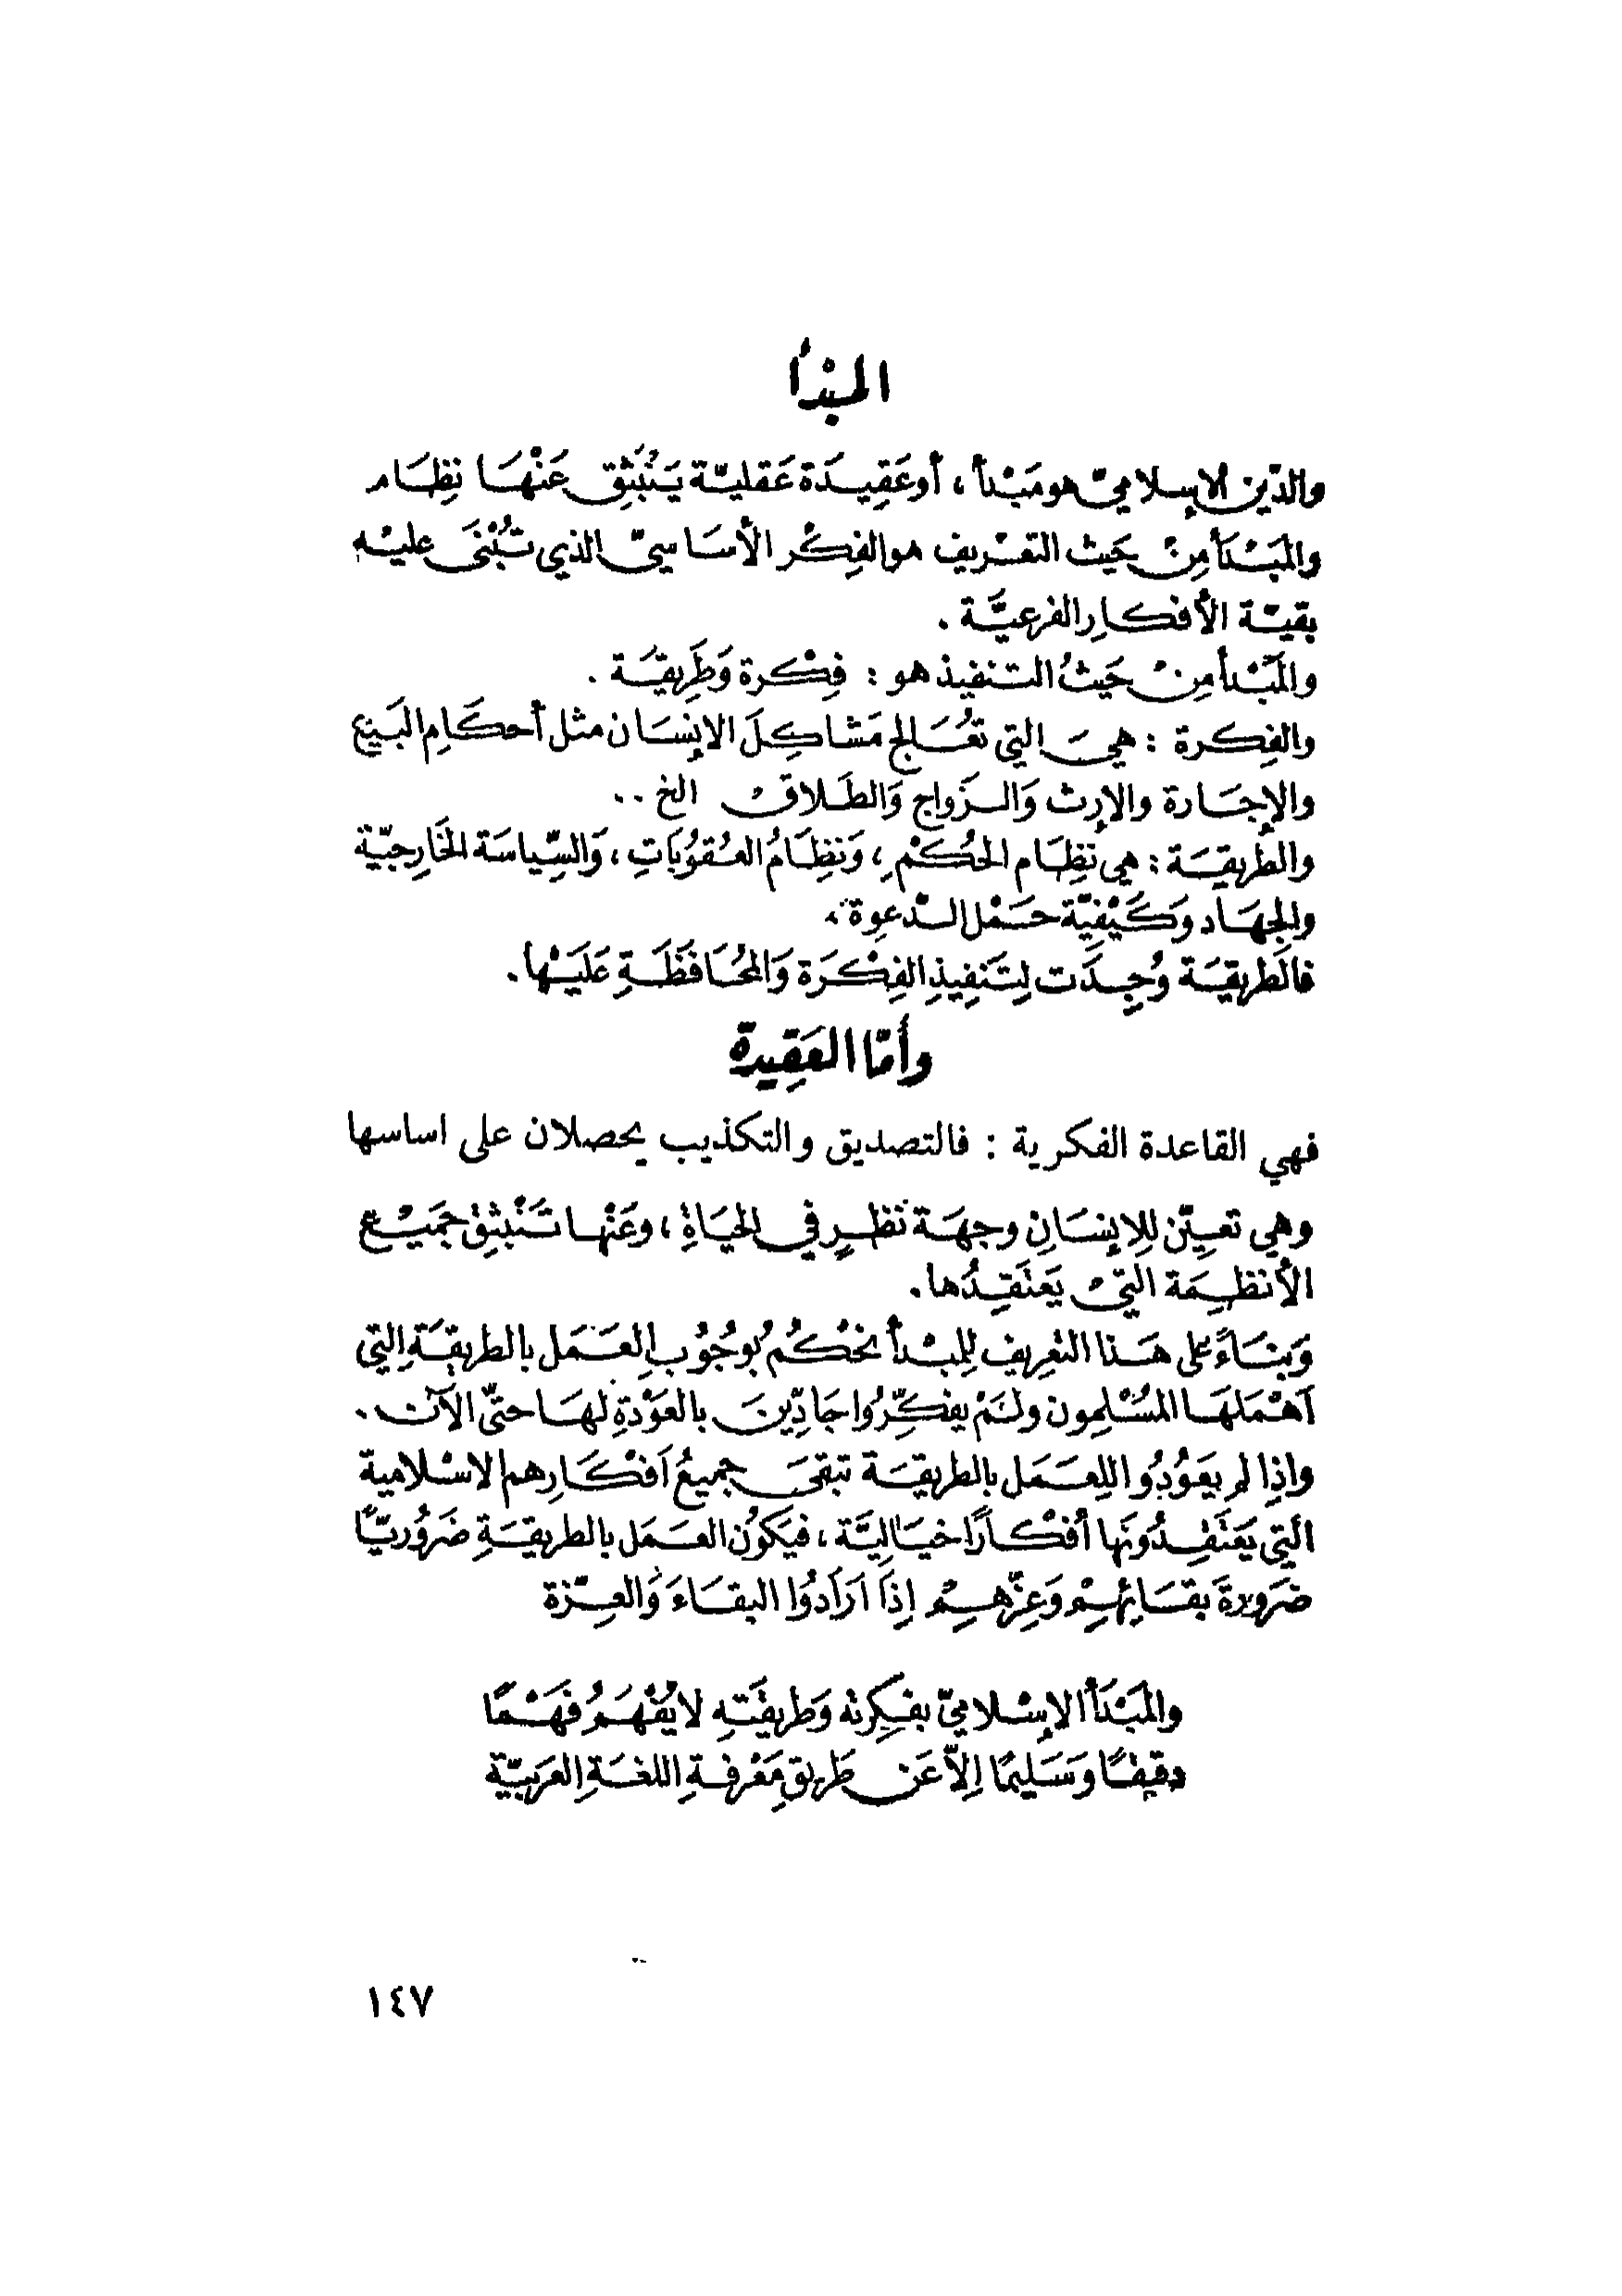 المبْدأ
والدّين الإسلاميّ هو مَبْدأ ، أو عَقِيدَة عَقليّة يَنْبَثِق عَنْهَا نِظَام
والمَبْدَأ مِنْ حَيث التعْريف هو الفِكْر الأسَاسيّ الذي تُبْنَى عليْه
بقيّة الأفكارِ الفرعيَّة .
والمَبْدأ مِنْ حَيثُ التنفيذ هو : فِكْرة وَطَرِيقَة .
والفِكرة : هيَ التي تعُالج مَشاكِلَ الإنسَان مثل أحكَامِ البَيع
والإجَارة والإرث وَالزَواج وَالطَلاقْ الخ ..
والطَريقَة : هي نظِام الحُكْمِ ، وَنِظَامُ العُقوُبَاتِ ، وَالسِّياسَة الخَارِجيّة
والجهَاد وَكَيْفيَّة حَمْل الدّعوة ،
فالَطريقَة وُجِدَت لِتَنفِيذِ الفِكْرَة وَالمحُافَظَةِ عَلَيْها .
وأمّا العَقِيدة
فهي القاعدة الفكرية : فالتصديق والتكذيب يحصلان على اساسها
وهي تعيّن للإنسَانِ وجهَة نظرٍ في الحيَاةِ ، وعَنْها تَنْبثِقْ جَميْع
الأنظِمَة التيْ يَعتَقِدُها .
وَبنَاءً على هَذا التعْريف لِلمبْدأ نحْكُم بُوجُوبِ العَمَل بالطريقَةِ التي
أهْمَلَهَا المُسْلِمون ولَمْ يفكِّرُوا جَادِّينَ بالعَوْدَةِ لهَا حتىّ الآن .
واذِا لم يعَوُدوُا للِعمَل بالطريقَة تبقىَ جميعُ أفْكَارِهم الاسْلامية
التي يَعتَقِدُونَها أفْكارًا خيَاليَّة ، فيَكوُن العَمَل بالطريقَةِ ضَرُوريًّا
ضَرُورةَ بقَائِهِمْ وَعِزّهِمْ إذَا ارَادُوا البقَاءَ وَالعِزّة
والمَبْدَأ الإسْلاميّ بفِكِرتهِ وَطريقَتهِ لا يُفْهَمُ فَهْمًا
دقيقًا وَسَليمًا إلاّ عَن طَريقِ مَعْرفةِ اللغَةِ العَرَبيّة
١٤٧